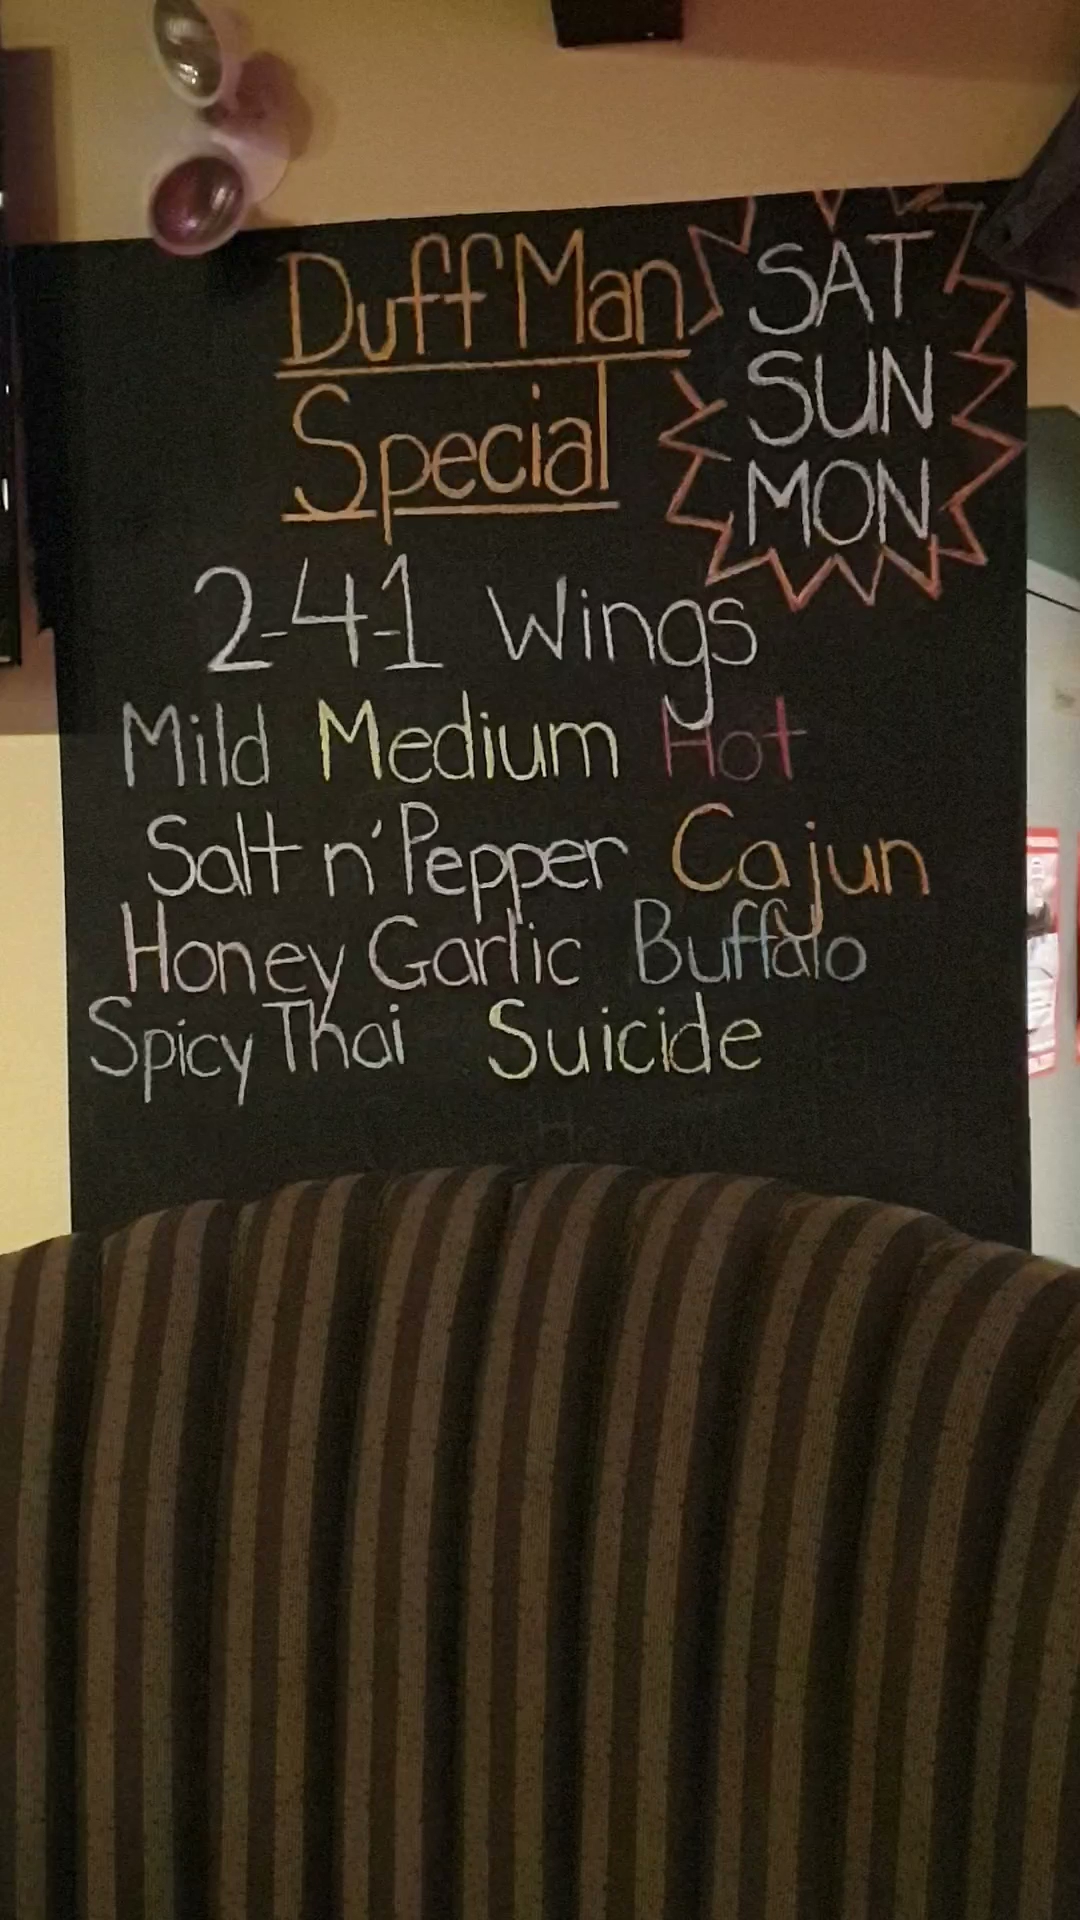 Duff Man
Special
SAT
SUN
MON
2-4-1 Wings
Mild Medium Hot
Salt n' Pepper Cajun
Honey Garlic Buffalo
Spicy Thai Suicide